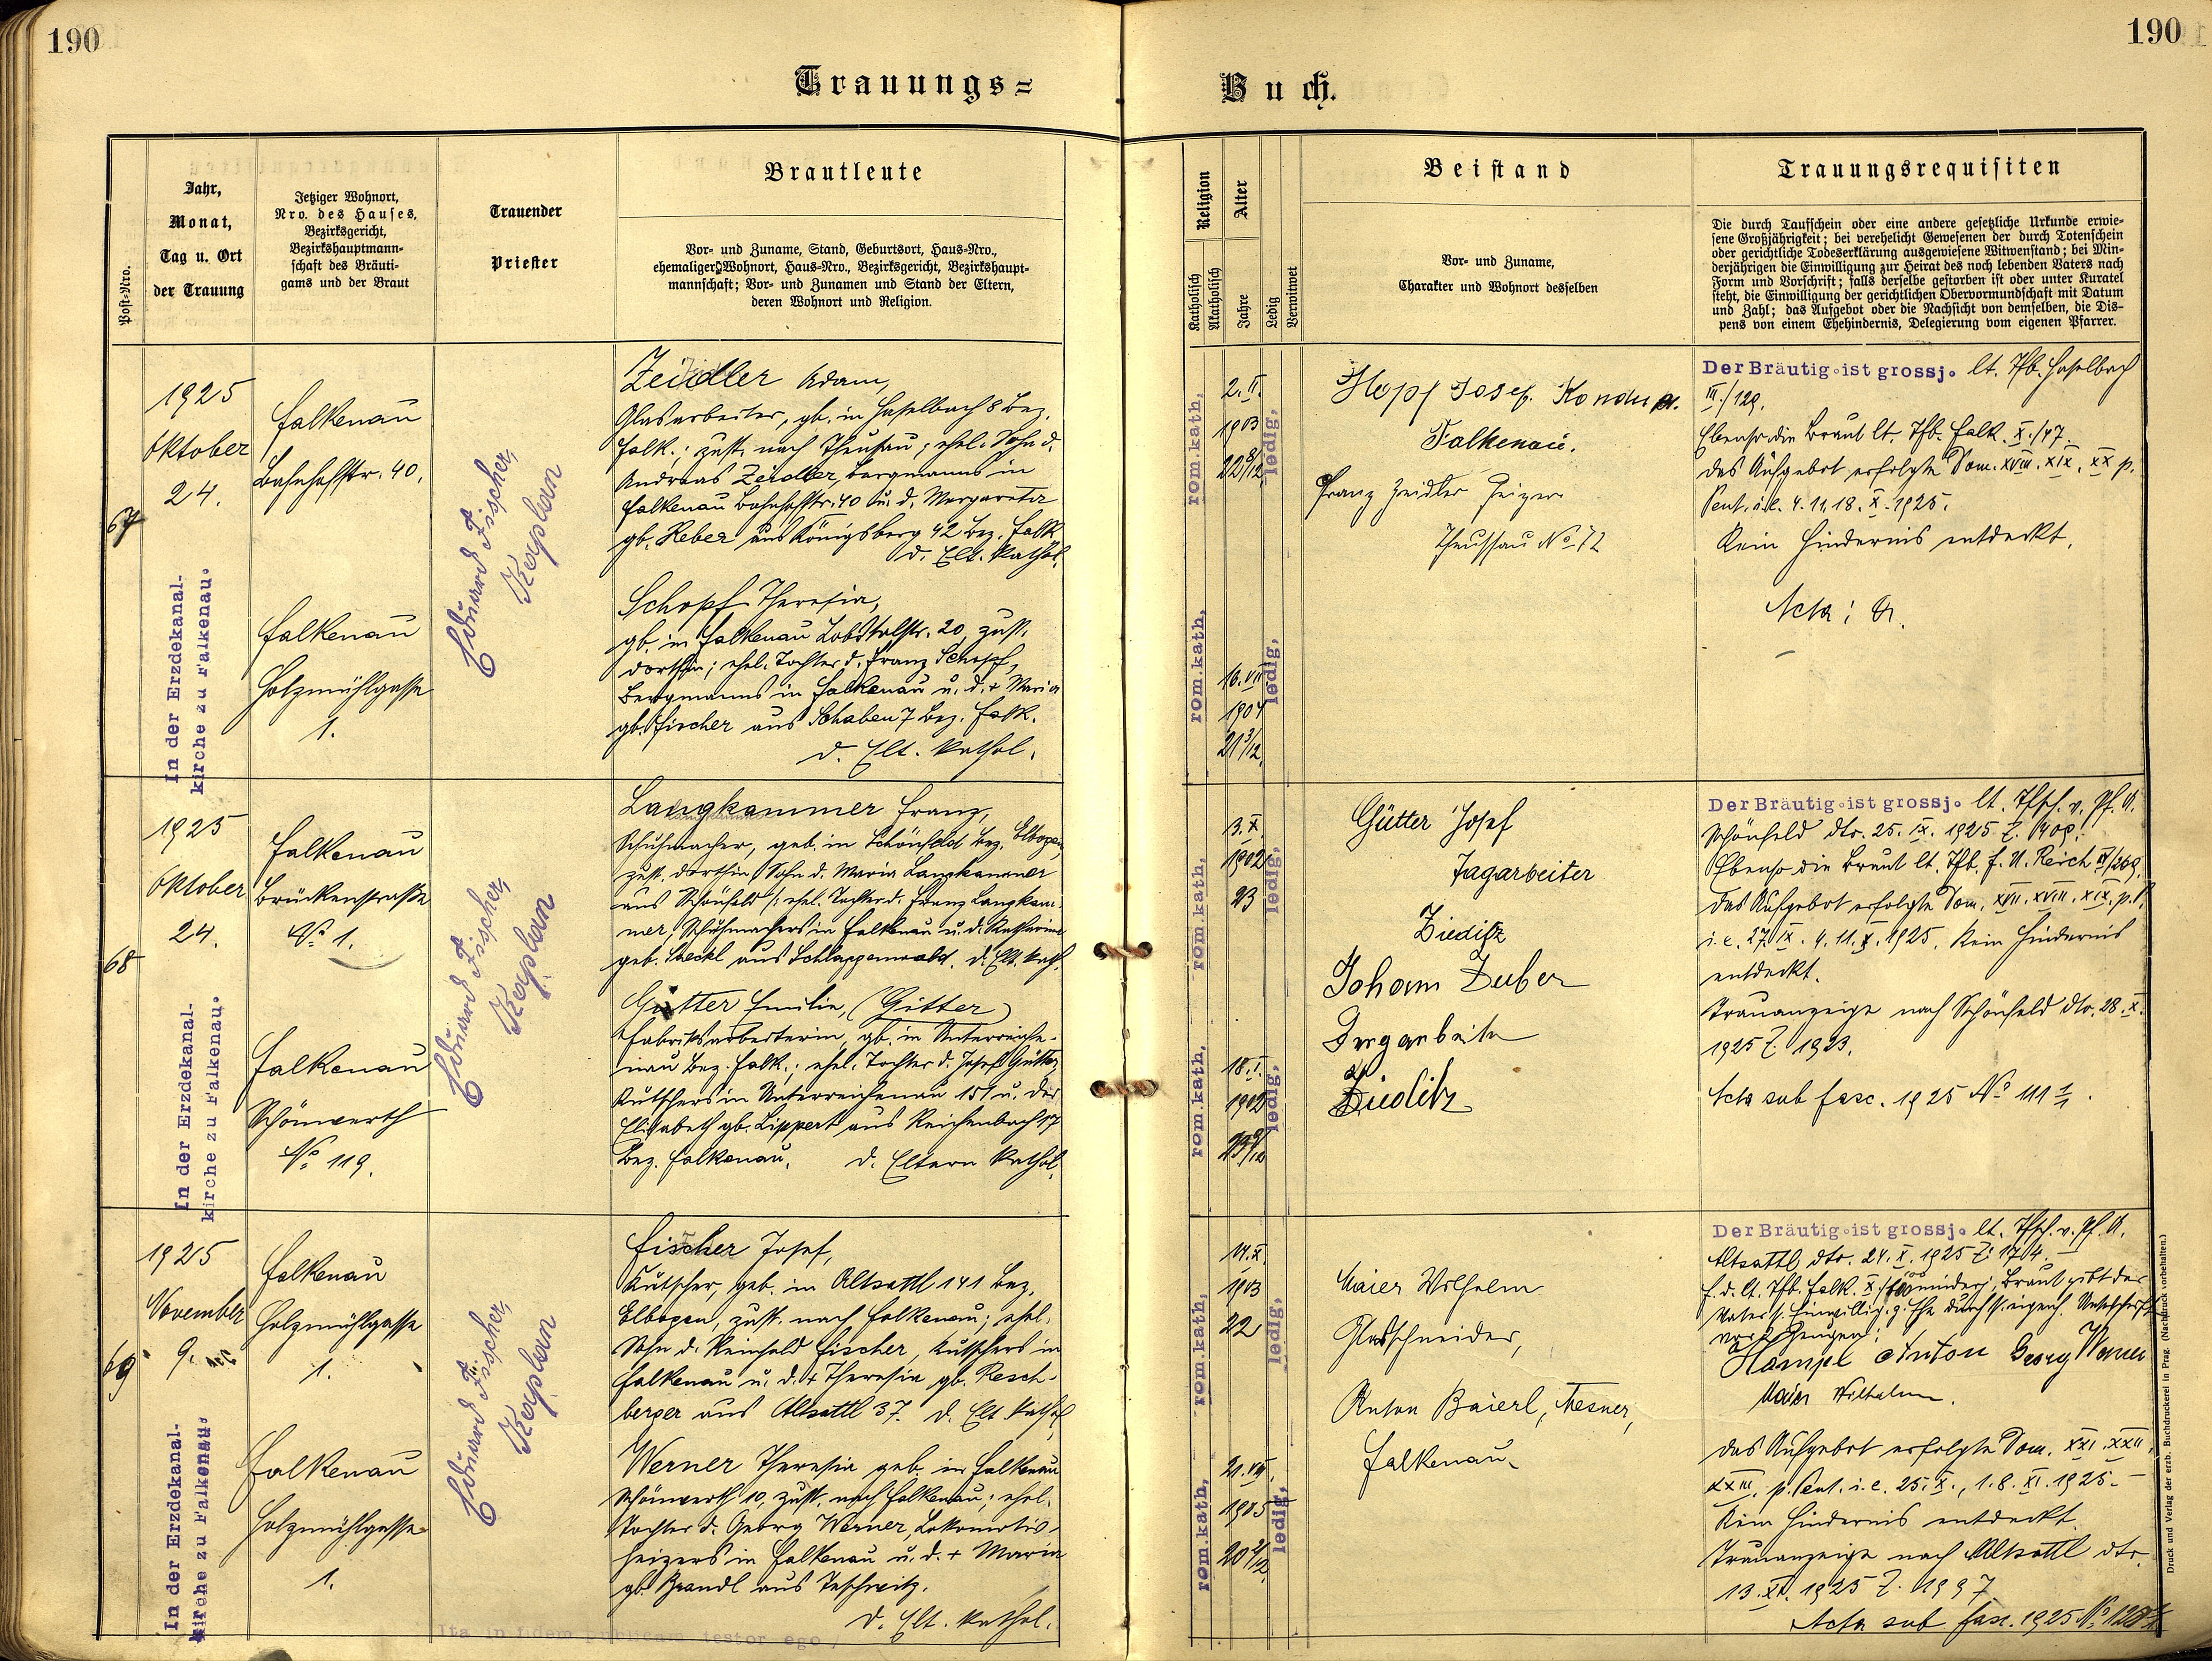 190
190
Trauungs=
Buch.
Post-Nro.
Jahr,
Monat,
Tag u. Ort
der Trauung
Jetziger Wohnort,
Nro. des Hauses,
Bezirksgericht,
Bezirkshauptmann-
schaft des Bräuti-
gams und der Braut
Trauender
Priester
Brautleute
Vor- und Zuname, Stand, Geburtsort, Haus-Nro.,
ehemaliger Wohnort, Haus-Nro., Bezirksgericht, Bezirkshaupt-
mannschaft; Vor- und Zunamen und Stand der Eltern,
deren Wohnort und Religion.
Religion
Katholisch
Akatholisch
Alter
Jahre
Ledig
Verwitwet
Beistand
Vor- und Zuname,
Charakter und Wohnort desselben
Trauungsrequisiten
Die durch Taufschein oder eine andere gesetzliche Urkunde erwie-
sene Großjährigkeit; bei verehelicht Gewesenen der durch Totenschein
oder gerichtliche Todeserklärung ausgewiesene Witwenstand; bei Min-
derjährigen die Einwilligung zur Heirat des noch lebenden Vaters nach
Form und Vorschrift; falls derselbe gestorben ist oder unter Kuratel
steht, die Einwilligung der gerichtlichen Obervormundschaft mit Datum
und Zahl; das Aufgebot oder die Nachsicht von demselben, die Dis-
pens von einem Ehehindernis, Delegierung vom eigenen Pfarrer.
67
1925
Oktober
24.
In der Erzdekanal-
kirche zu Falkenau.
Falkenau
Bahnhofstr. 40.
Falkenau
Holzmühlgasse
1.
Eduard Fischer,
Kaplan
Zeidler Adam,
Glasarbeiter, gb. in Haselbach 8 Bez.
Falk.; zust. nach Theusau; ehel. Sohn d.
Andreas Zeidler, Bergmanns in
Falkenau Bahnhofstr. 40 u. d. Margareta
gb. Reber aus Königsberg 42 Bez. Falk.
d. Elt. kathol.
Schopf Theresia,
gb. in Falkenau Lobstalstr. 20, zust.
dorthin; ehel. Tochter d. Franz Schopf,
Bergmanns in Falkenau u. d. + Maria
gb. Fischer aus Schaben 7 Bez. Falk.
d. Elt. kathol.
rom.kath,
2. II.
1903
22 8/12
ledig,
rom.kath,
16. VII
1904
21 3/12
ledig,
Hopf Josef
Falkenau.
Franz Zeidler Heizer
Theussau No 72
Der Bräutig. ist grossj. lt. Tfb. Haselbach
III./129.
Ebenso die Braut lt. Tfb. Falk. X./47.
Das Aufgebot erfolgte Dom. XVIII. XIX. XX p.
Pent. i.e. 4. 11. 18. X. 1925.
Kein Hindernis entdeckt.
Acta:
68
1925
Oktober
24.
In der Erzdekanal-
kirche zu Falkenau.
Falkenau
Brückenstraße
No 1.
Falkenau
Schönwerth
No 119.
Eduard Fischer,
Kaplan
Langkammer Franz,
Schuhmacher, geb. in Schönfeld Bez. Elbogen,
zust. dorthin, Sohn d. Maria Langkammer
aus Schönfeld /: ehel. Tochter d. Franz Langkam-
mer, Schuhmachers in Falkenau u. d. Katharina
geb. aus Schlaggenwald. d. Elt. kath.
Gütter Emilie, (Gitter)
Fabriksarbeiterin, gb. in Unterreiche-
nau Bez. Falk.; ehel. Tochter d. Josef Gütter,
Kutschers in Unterreichenau 151 u. der
Elisabeth gb. Lippert aus Reichenbach 17
Bez. Falkenau. d. Eltern kathol.
rom.kath,
3. X.
1902
23
ledig,
rom.kath,
18. I.
1902
23 9/12
ledig,
Gütter Josef
Tagarbeiter
Zieditz
Johann Zuber
Zieditz
Der Bräutig. ist grossj. lt. Tfsch. v. Pf. A.
Schönfeld dto. 25. IX. 1925 Z.
Ebenso die Braut lt. Tfb. f. U. Reich IV/269.
Das Aufgebot erfolgte Dom. XVII. XVIII. XIX. p. P.
i.e. 27. IX. 4. 11. X. 1925. Kein Hindernis
entdeckt.
Trauanzeige nach Schönfeld dto. 28. X.
1925 Z. 1923.
Acta sub fasc. 1925 No 111 1/1.
69
1925
November
9.
In der Erzdekanal-
kirche zu Falkenau.
Falkenau
Holzmühlgasse
1.
Falkenau
Holzmühlgasse
1.
Eduard Fischer,
Kaplan
Fischer Josef,
Kutscher, geb. in Altsattl 141 Bez.
Elbogen, zust. nach Falkenau; ehel.
Sohn d. Reinhold Fischer, Kutschers in
Falkenau u. d. + Theresia gb. Resch-
berger aus Altsattl 37. d. Elt. kathol.
Werner Theresia geb. in Falkenau
Schönwerth 10, zust. nach Falkenau; ehel.
Tochter d. Georg Werner, Lokomotiv-
heizers in Falkenau u. d. + Maria
gb. Brandl aus Teschwitz.
d. Elt. kathol.
rom.kath,
14. X.
1903
22
ledig,
rom.kath,
21. VIII.
1905
20 2/12
ledig,
Maier Wilhelm
Glasschneider,
Anton Baierl, Mesner,
Falkenau.
Der Bräutig. ist grossj. lt. Tfsch. v. Pf. A.
Altsattl dto. 24. X. 1925 Z. 1704.
F. d. lt. Tfb. Falk. X/ minderj. Braut gibt der
Vater s. Einwillig. z. Ehe durch s. eigenh. Unterschrift
vor 2 Zeugen:
Hampl Anton Georg Werner
Maier Wilhelm.
Das Aufgebot erfolgte Dom. XXI. XXII.
XXIII. p. Pent. i.e. 25. X., 1. 8. XI. 1925.
Kein Hindernis entdeckt.
Trauanzeige nach Altsattl dto.
13. XI. 1925 Z. 1997
Acta sub fasc. 1925 No
Ita in fidem testor ego,
Druck und Verlag der erzb. Buchdruckerei in Prag. (Nachdruck vorbehalten.)